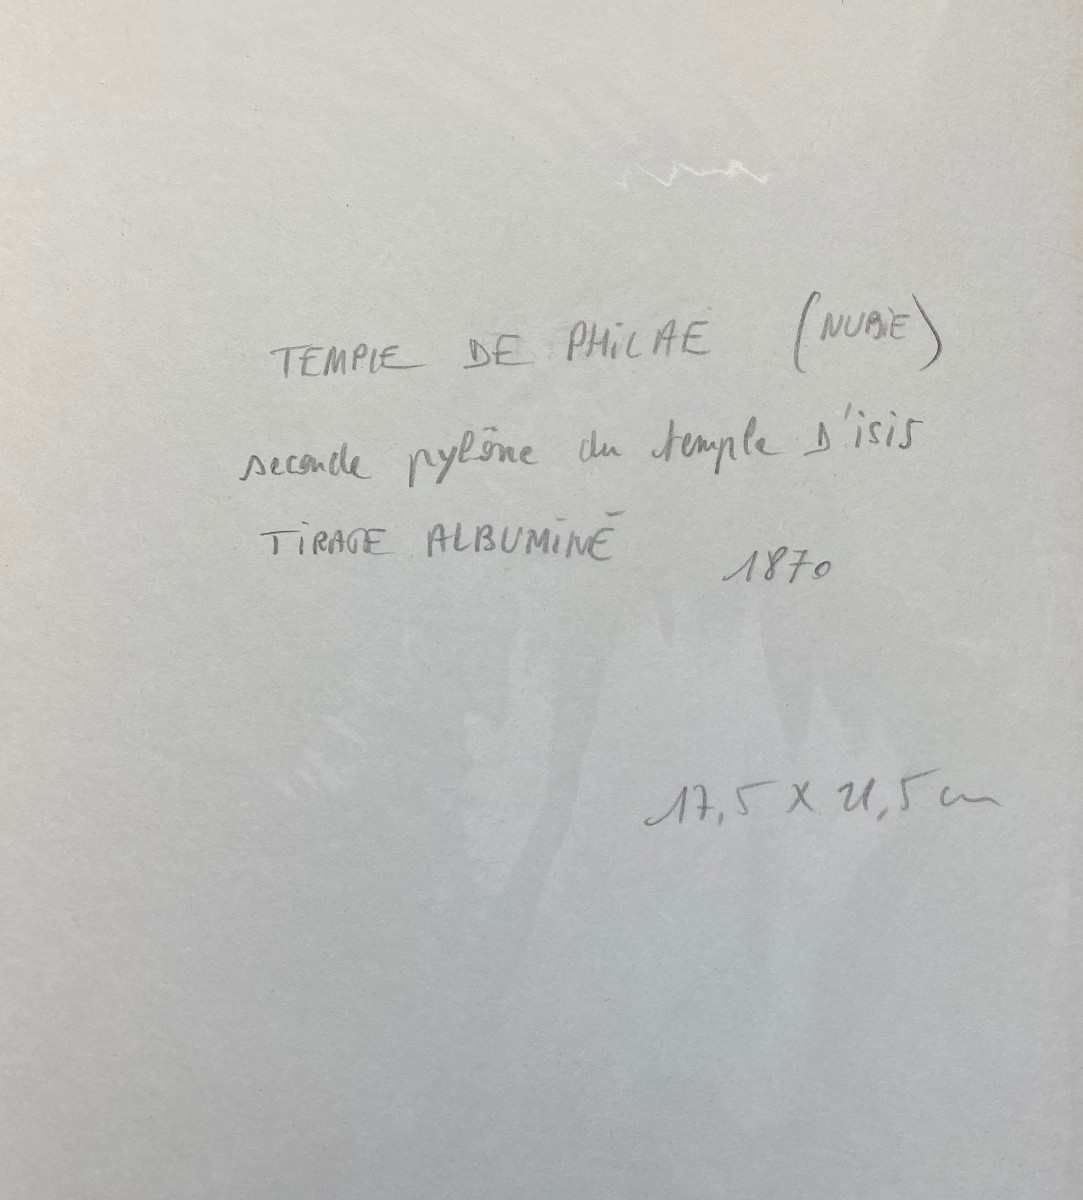 TEMPLE DE PHILAE (NUBIE)
seconde pylône du temple D'isis
TIRAGE ALBUMINÉ 1870
17,5 X 21,5 cm